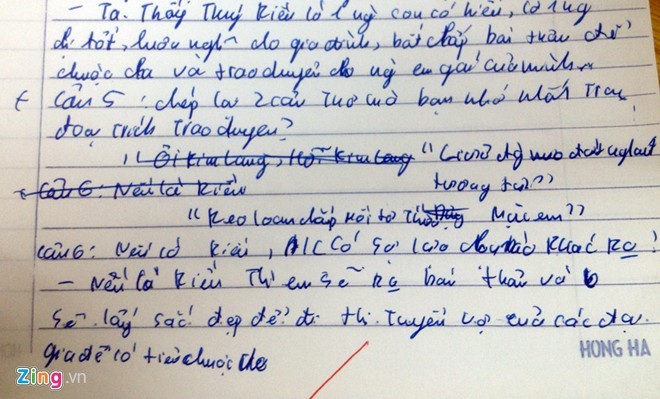 - Ta. Thấy Thuý Kiều là 1 ng con có hiếu, là 1 ng
chị tốt, luôn nghĩ cho gia đình, bất chấp bán thân để
chuộc cha và trao duyên cho ng em gái của mình
Câu 5: chép lại 2 câu Thơ mà bạn nhớ nhất Trong
đoạn trích Trao duyên?
" Ôi Kim Lang, Hỡi Kim Lang " Giữa đg đứt
Câu 6: Nếu là Kiều
tương tư"
"Keo loan chắp mối tơ Thừa Mặc em"
Câu 6: Nếu là Kiều, A/C Có Sự lựa chọn nào Khác Ko!
- Nếu là Kiều Thì em sẽ Ko bán thân và
Sẽ lấy sắc đẹp để đi thi Tuyển vợ của các đại
gia để có tiền chuộc cha
HONG HA
Zing.vn